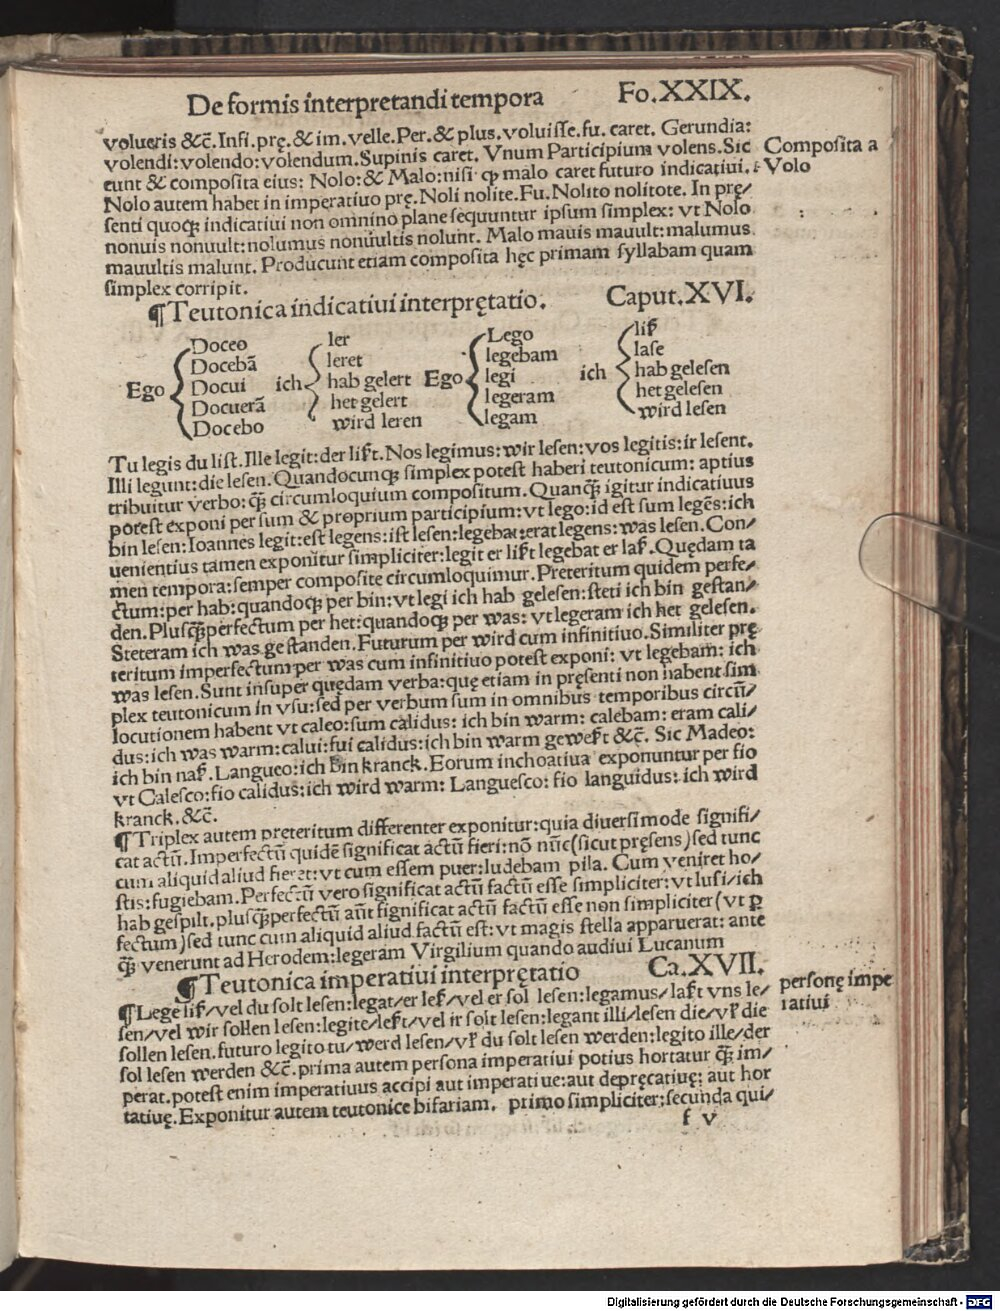 De formis interpretandi tempora Fo.XXIX.
volueris &c̄. Infi. prę. & im. velle. Per. & plus. voluiſſe. fu. caret. Gerundia:
volendi: volendo: volendum. Supinis caret. Vnum Participium volens. Sic
eunt & compoſita eius: Nolo: & Malo: niſi qꝫ malo caret futuro indicatiui.
Compoſita a
Volo
Nolo autem habet in imperatiuo prę. Noli nolite. Fu. Nolito nolitote. In prę/
ſenti quoqꝫ indicatiui non omnino plane ſequuntur ipſum ſimplex: vt Nolo
nonuis nonuult: nolumus nonuultis nolunt. Malo mauis mauult: malumus
mauultis malunt. Producunt etiam compoſita hęc primam ſyllabam quam
ſimplex corripit.
¶Teutonica indicatiui interprętatio. Caput.XVI.
Ego
Doceo
Docebā
Docui
Docuerā
Docebo
ich
ler
leret
hab gelert
het gelert
wird leren
Ego
Lego
legebam
legi
legeram
legam
ich
liſ
laſe
hab geleſen
het geleſen
wird leſen
Tu legis du liſt. Ille legit: der liſt. Nos legimus: wir leſen: vos legitis: ir leſent.
Illi legunt: die leſen. Quandocunqꝫ ſimplex poteſt haberi teutonicum: aptius
tribuitur verbo: qꝫ̃ circumloquium compoſitum. Quanqꝫ̃ igitur indicatiuus
poteſt exponi per ſum & proprium participium: vt lego: id eſt ſum legēs: ich
bin leſen: Ioannes legit: eſt legens: iſt leſen: legebat: erat legens: was leſen. Con/
uenientius tamen exponitur ſimpliciter: legit er liſt legebat er laſ. Quędam ta
men tempora: ſemper compoſite circumloquimur. Preteritum quidem perfe/
ctum: per hab: quandoqꝫ per bin: vt legi ich hab geleſen: ſteti ich bin geſtan/
den. Pluſqꝫ̃perfectum per het: quandoqꝫ per was: vt legeram ich het geleſen.
Steteram ich was geſtanden. Futurum per wird cum infinitiuo. Similiter prę
teritum imperfectum per was cum infinitiuo poteſt exponi: vt legebam: ich
was leſen. Sunt inſuper quędam verba: quę etiam in pręſenti non habent ſim
plex teutonicum in vſu: ſed per verbum ſum in omnibus temporibus circū/
locutionem habent vt caleo: ſum calidus: ich bin warm: calebam: eram cali/
dus: ich was warm: calui: fui calidus: ich bin warm geweſt &c̄. Sic Madeo:
ich bin naſ. Langueo: ich bin kranck. Eorum inchoatiua exponuntur per fio
vt Caleſco: fio calidus: ich wird warm: Langueſco: fio languidus: ich wird
kranck. &c̄.
¶Triplex autem preteritum differenter exponitur: quia diuerſimode ſignifi/
cat actū. Imperfectū quidē ſignificat actū fieri: nō nūc (ſicut pręſens) ſed tunc
cum aliquid aliud fieret: vt cum eſſem puer: ludebam pila. Cum veniret ho/
ſtis: fugiebam. Perfectū vero ſignificat actū factū eſſe ſimpliciter: vt luſi/ich
hab geſpilt. pluſqꝫ̃perfectū aūt ſignificat actū factū eſſe non ſimpliciter (vt ꝑ
fectum) ſed tunc cum aliquid aliud factū eſt: vt magis ſtella apparuerat: ante
qꝫ̃ venerunt ad Herodem: legeram Virgilium quando audiui Lucanum
¶Teutonica imperatiui interprętatio Ca.XVII.
perſonę impe
ratiui
¶Lege liſ/vel du ſolt leſen: legat/er leſ/vel er ſol leſen: legamus/laſt vns le/
ſen/vel wir ſollen leſen: legite/leſt/vel ir ſolt leſen: legant illi/leſen die/vl̕ die
ſollen leſen. futuro legito tu/werd leſen/vl̕ du ſolt leſen werden: legito ille/der
ſol leſen werden &c̄. prima autem perſona imperatiui potius hortatur qꝫ̃ im/
perat. poteſt enim imperatiuus accipi aut imperatiue: aut depręcatiuę: aut hor
tatiuę. Exponitur autem teutonice bifariam. primo ſimpliciter: ſecunda qui/
f v
Digitalisierung gefördert durch die Deutsche Forschungsgemeinschaft - DFG